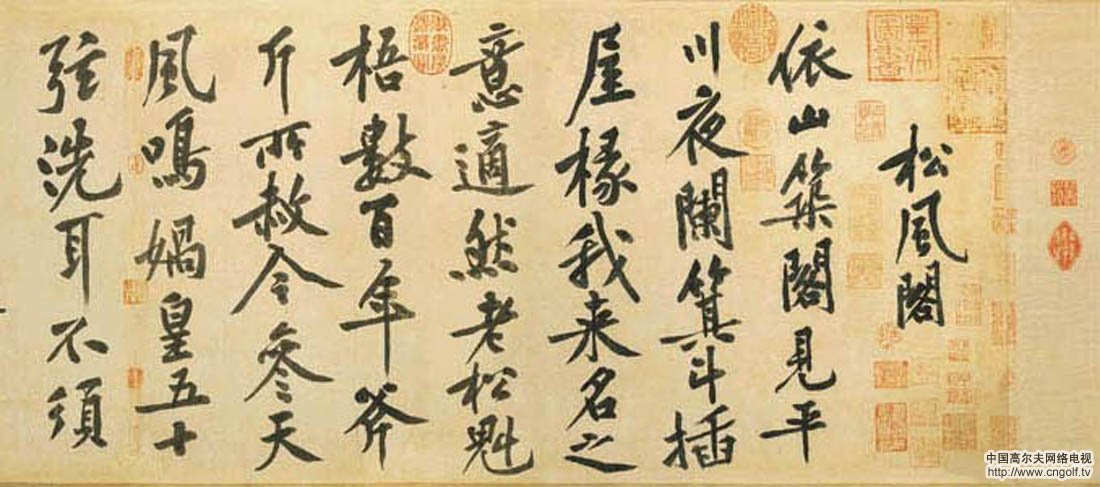 松風閣
依山築閣見平
川夜闌箕斗插
屋椽我来名之
意適然老松魁
梧數百年斧
斤所赦今參天
風鳴媧皇五十
弦洗耳不須
中国高尔夫网络电视
http://www.cngolf.tv